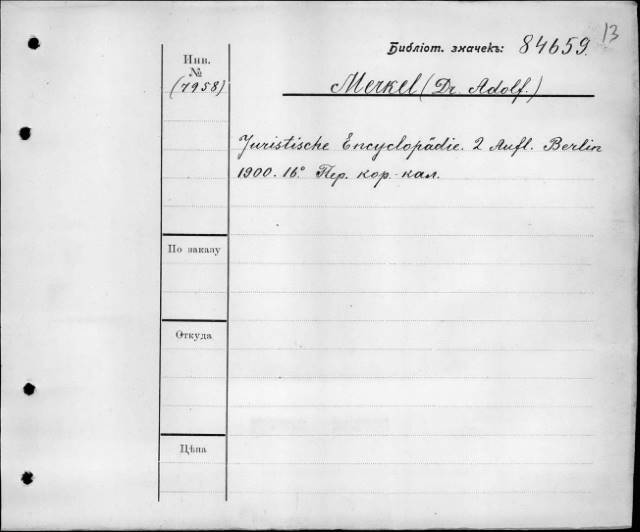 13
Библіот. значекъ: 84659.
Инв.
№
(7958)
Merkel (Dr. Adolf.)
Juristische Encyclopädie. 2 Aufl. Berlin
1900. 16° Пер. кор.-кал.
По заказу
Откуда
Цѣна